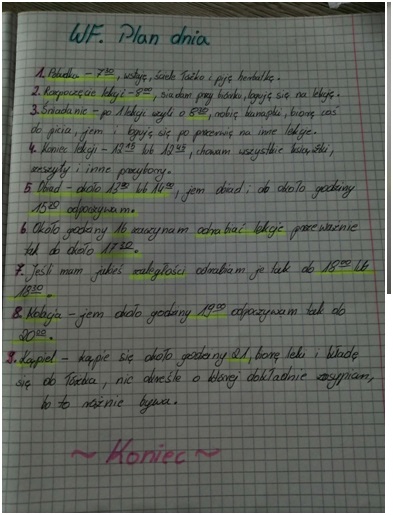 WF. Plan dnia
1. Pobudka - 7³⁰, wstaję, ściele łóżko i piję herbatkę.
2. Rozpoczęcie lekcji - 8⁰⁰, siadam przy biurku, loguję się na lekcję.
3. Śniadanie - po 1 lekcji czyli o 8³⁰, robię kanapki, biorę coś
do picia, jem i loguję się po przerwie na inne lekcje.
4. Koniec lekcji - 12¹⁵ lub 12⁴⁵, chowam wszystkie książki,
zeszyty i inne przybory.
5. Obiad - około 13³⁰ lub 14⁰⁰, jem obiad i do około godziny
15³⁰ odpoczywam.
6. Około godziny 16 zaczynam odrabiać lekcje przeważnie
tak do około 17³⁰.
7. Jeśli mam jakieś zaległości odrabiam je tak do 18⁰⁰ lub
18³⁰.
8. Kolacja - jem około godziny 19⁰⁰ odpoczywam tak do
20⁰⁰.
9. Kąpiel - kąpie się około godziny 21, biorę leki i kładę
się do łóżka, nie określe o której dokładnie zasypiam,
bo to różnie bywa.
~ Koniec ~